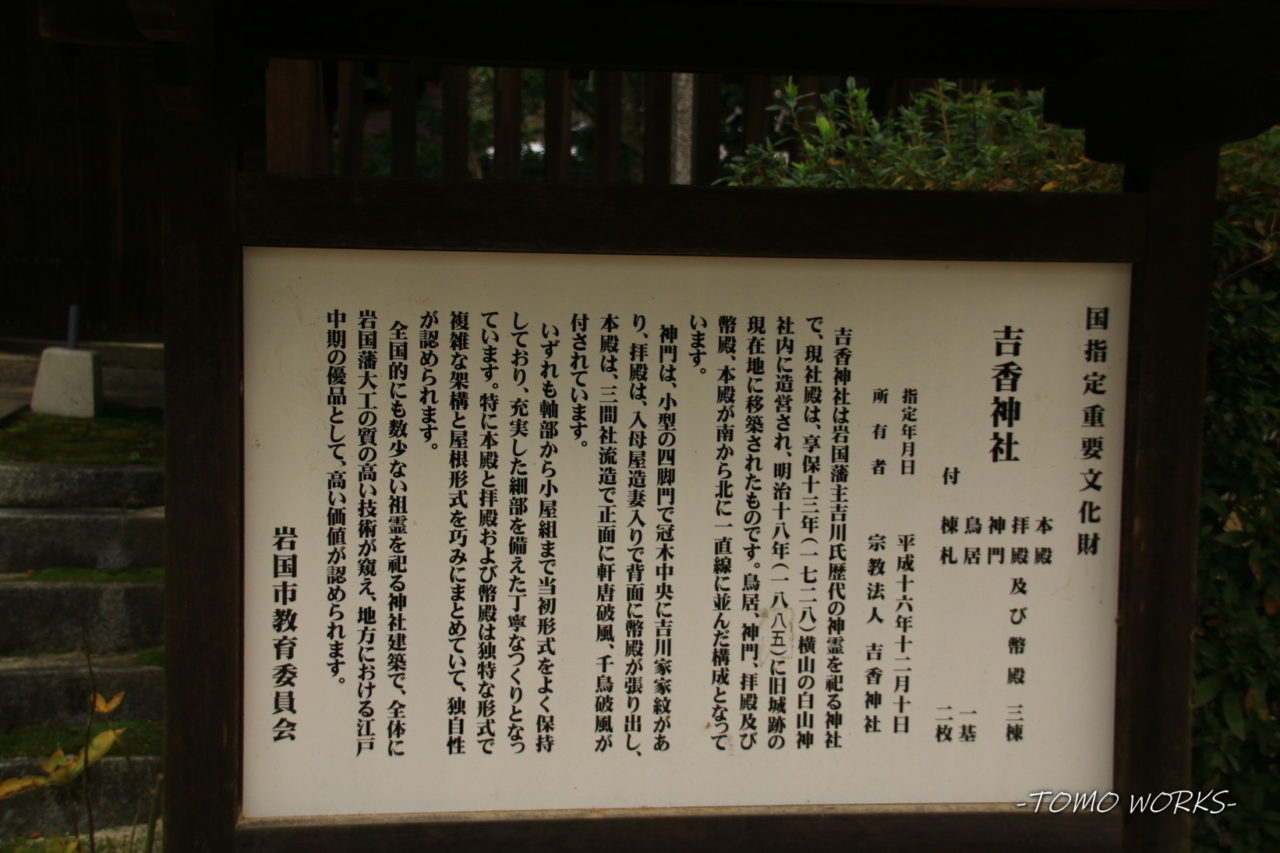 国指定重要文化財
吉香神社
本殿
拝殿及び幣殿 三棟
神門
鳥居 一基
付 棟札 二枚
指定年月日 平成十六年十二月十日
所有者 宗教法人 吉香神社
吉香神社は岩国藩主吉川氏歴代の神霊を祀る神社
で、現社殿は、享保十三年(一七二八)横山の白山神
社内に造営され、明治十八年(一八八五)に旧城跡の
現在地に移築されたものです。鳥居、神門、拝殿及び
幣殿、本殿が南から北に一直線に並んだ構成となって
います。
神門は、小型の四脚門で冠木中央に吉川家家紋があ
り、拝殿は、入母屋造妻入りで背面に幣殿が張り出し、
本殿は、三間社流造で正面に軒唐破風、千鳥破風が
付されています。
いずれも軸部から小屋組まで当初形式をよく保持
しており、充実した細部を備えた丁寧なつくりとなっ
ています。特に本殿と拝殿および幣殿は独特な形式で
複雑な架構と屋根形式を巧みにまとめていて、独自性
が認められます。
全国的にも数少ない祖霊を祀る神社建築で、全体に
岩国藩大工の質の高い技術が窺え、地方における江戸
中期の優品として、高い価値が認められます。
岩国市教育委員会
-TOMO WORKS-